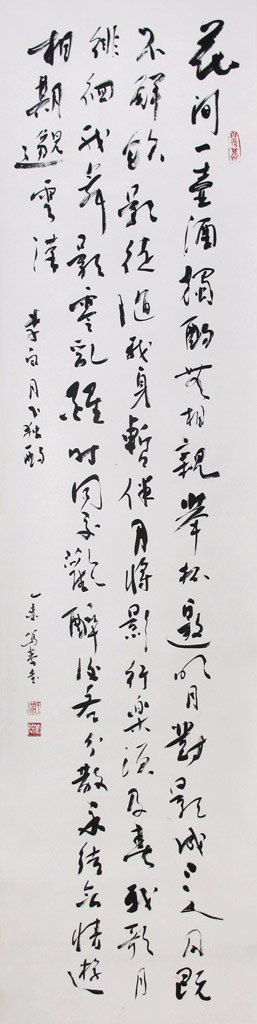 花間一壺酒獨酌無相親舉杯邀明月對影成三人月既
不解飲影徒隨我身暫伴月將影行樂須及春我歌月
徘徊我舞影零亂醒時同交歡醉後各分散永結無情遊
相期邈雲漢
李白月下獨酌
乙未